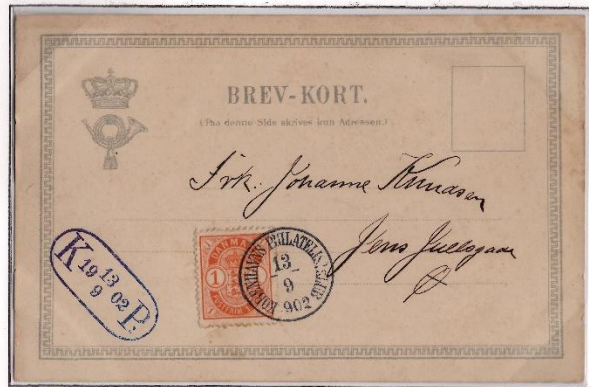 BREV-KORT.
(Paa denne Side skrives kun Adressen.)
Frk. Johanne Knudsen
Jens Juelsgade
DANMARK
1
KØBENHAVNS PHILATELISTKLUB
13
9
902
K 19 13
9 02 P.